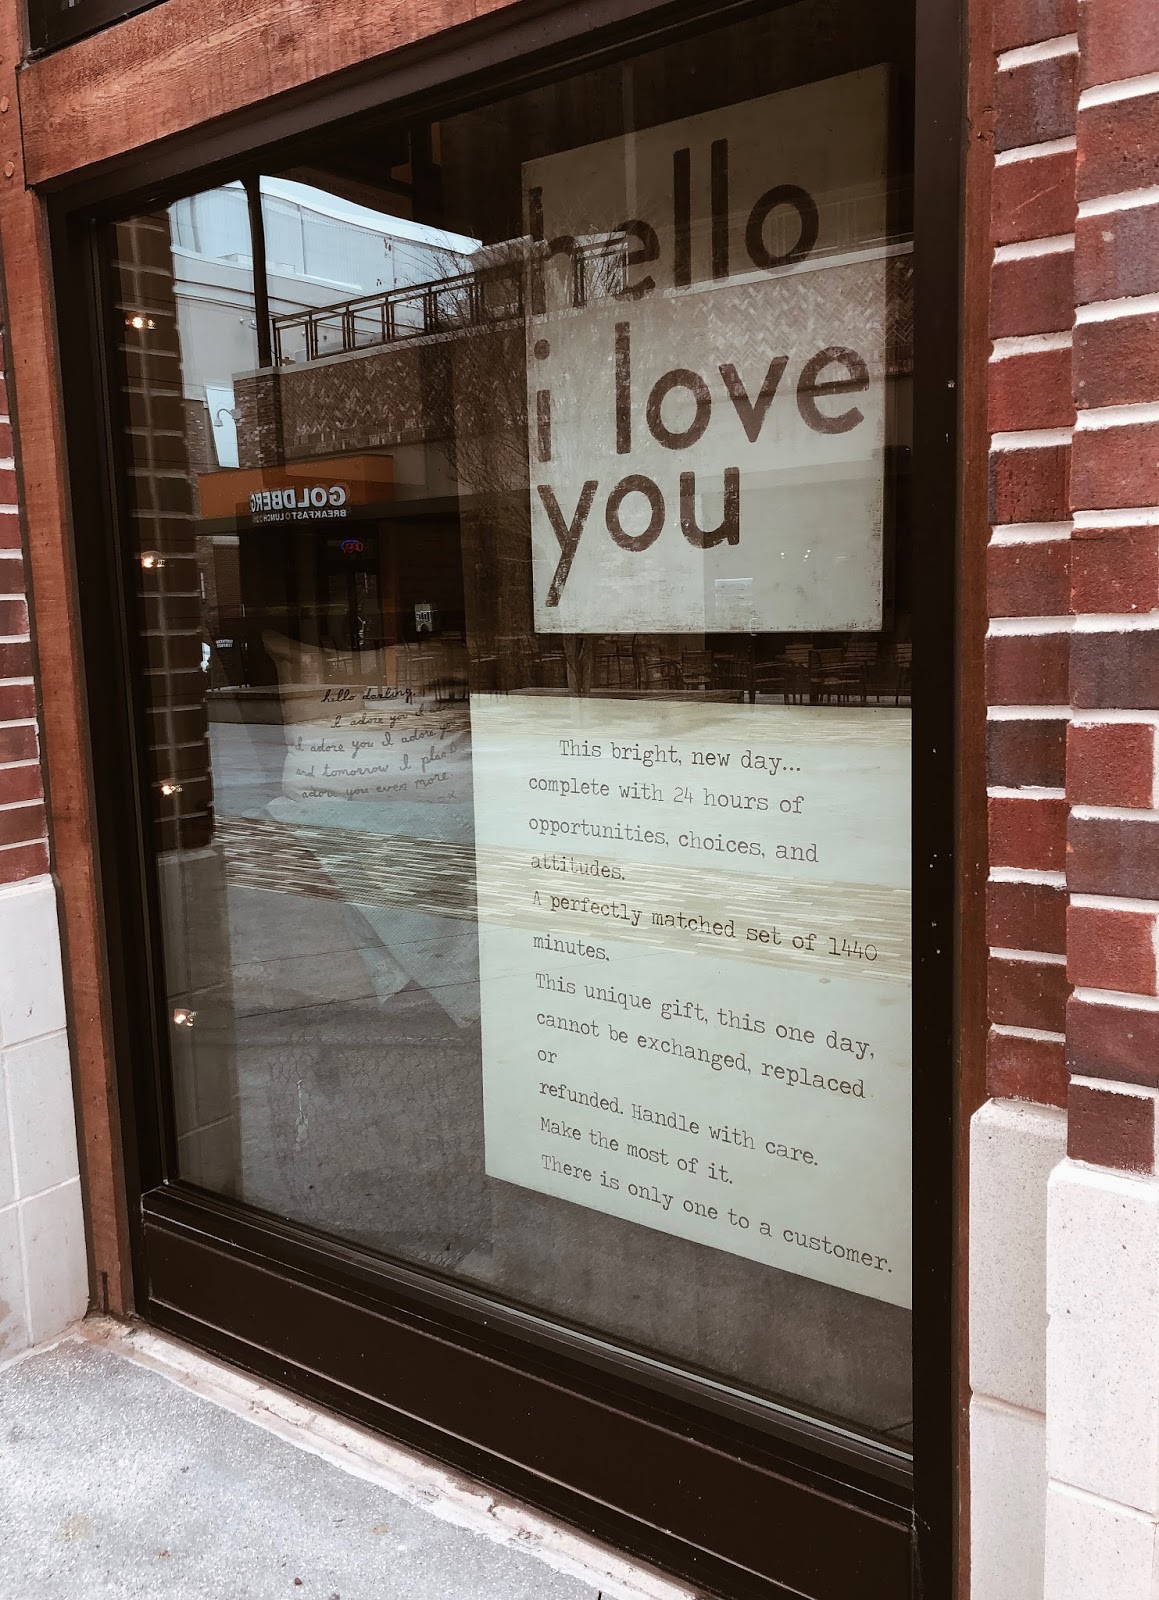 hello
i love
you
GOLDBERG
BREAKFAST LUNCH
hello darling,
I adore you I adore
I adore you I adore you
and tomorrow I plan
adore you even more.
This bright, new day...
complete with 24 hours of
opportunities, choices, and
attitudes.
A perfectly matched set of 1440
minutes.
This unique gift, this one day,
cannot be exchanged, replaced
or
refunded. Handle with care.
Make the most of it.
There is only one to a customer.